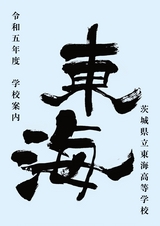 令和五年度 学校案内
東海
茨城県立東海高等学校